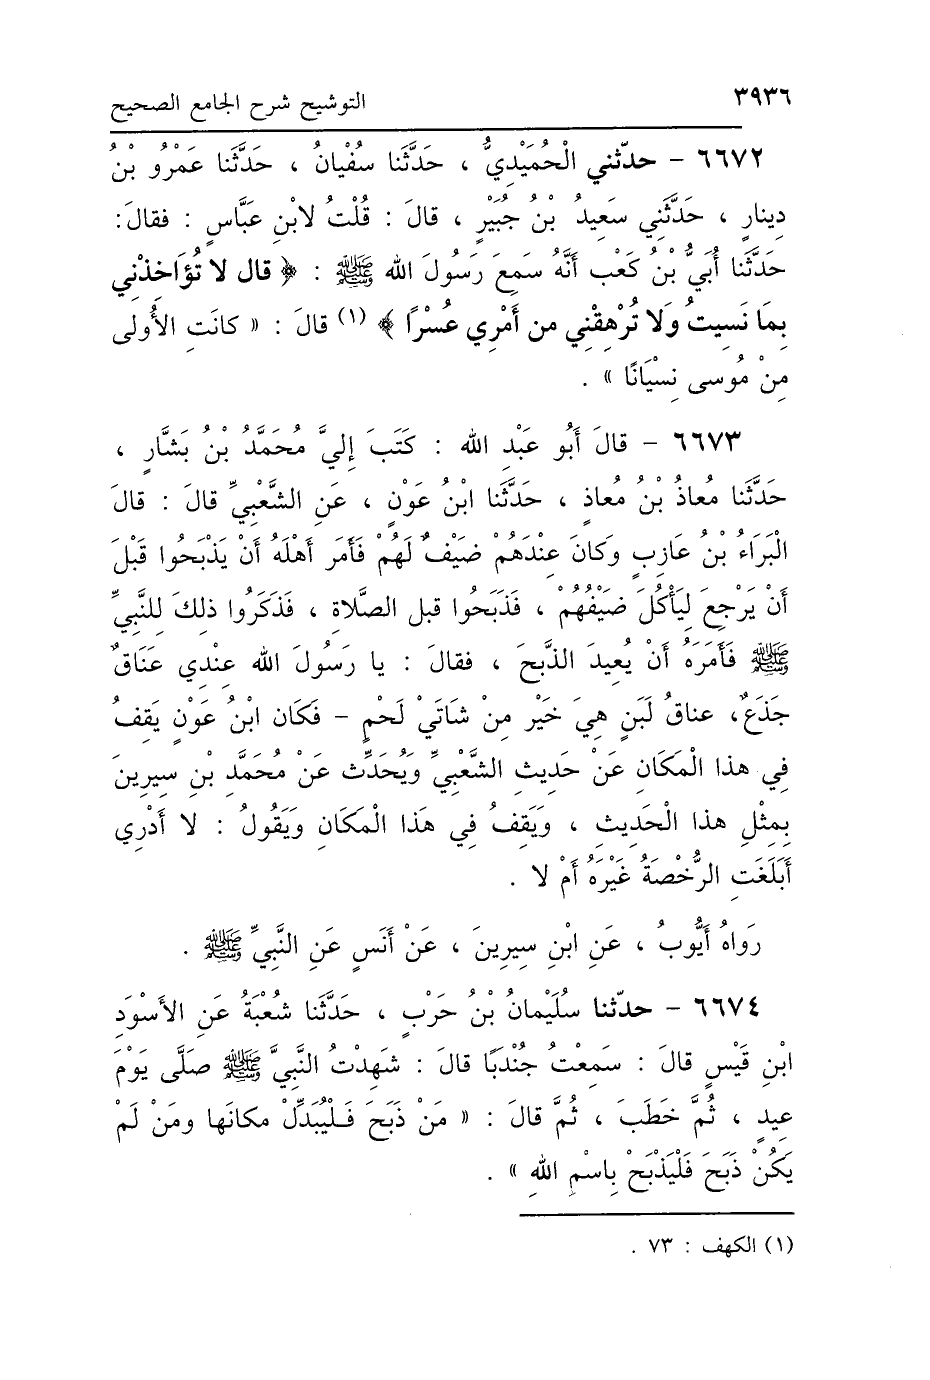 ٣٩٣٦ التوشيح شرح الجامع الصحيح
٦٦٧٢ – حدّثني الْحُمَيْدِيُّ ، حَدَّثَنَا سُفْيَانُ ، حَدَّثَنا عَمْرُو بْنُ
دِينارٍ ، حَدَّثَنِي سَعِيدُ بْنُ جُبَيْرٍ ، قالَ : قُلْتُ لابْنِ عَبَّاسٍ : فقالَ:
حَدَّثَنا أُبَيُّ بْنُ كَعْبٍ أَنَّهُ سَمِعَ رَسُولَ الله ﷺ : ﴿ قال لا تُؤَاخِذْنِي
بِمَا نَسِيتُ وَلا تُرْهِقْنِي من أَمْرِي عُسْرًا ﴾ (١) قالَ : « كانَتِ الأُولى
مِنْ مُوسى نِسْيَانًا » .
٦٦٧٣ – قالَ أَبُو عَبْدِ الله : كَتَبَ إِليَّ مُحَمَّدُ بْنُ بَشَّارٍ ،
حَدَّثَنا مُعاذُ بْنُ مُعاذٍ ، حَدَّثَنا ابْنُ عَوْنٍ ، عَنِ الشَّعْبِيِّ قالَ : قالَ
الْبَرَاءُ بْنُ عَازِبٍ وَكانَ عِنْدَهُمْ ضَيْفٌ لَهُمْ فَأَمَر أَهْلَهُ أَنْ يَذْبَحُوا قَبْلَ
أَنْ يَرْجِعَ لِيَأْكُلَ ضَيْفُهُمْ ، فَذَبَحُوا قبل الصَّلاة ، فَذَكَرُوا ذلِكَ للنَّبِيِّ
ﷺ فَأَمَرَهُ أَنْ يُعِيدَ الذَّبحَ ، فقالَ : يا رَسُولَ الله عِنْدِي عَنَاقٌ
جَذَعٌ، عناقُ لَبَنٍ هِيَ خَيْر مِنْ شَاتَيْ لَحْمٍ – فَكَان ابْنُ عَوْنٍ يَقِفُ
فِي هذا الْمَكَانِ عَنْ حَدِيثِ الشَّعْبِيِّ وَيُحَدِّث عَنْ مُحَمَّدِ بْنِ سِيرِينَ
بِمِثْلِ هذا الْحَدِيثِ ، وَيَقِفُ فِي هَذا الْمَكَانِ وَيَقُولُ : لا أَدْرِي
أَبَلَغَتِ الرُّخْصَةُ غَيْرَهُ أَمْ لا .
رَوَاهُ أَيُّوبُ ، عَنِ ابْنِ سِيرِينَ ، عَنْ أَنَسٍ عَنِ النَّبِيِّ ﷺ .
٦٦٧٤ – حدّثنا سُلَيْمانُ بْنُ حَرْبٍ ، حَدَّثَنا شُعْبَةُ عَنِ الأَسْوَدِ
ابْنِ قَيْسٍ قالَ : سَمِعْتُ جُنْدَبًا قالَ : شَهِدْتُ النَّبِيَّ ﷺ صَلَّى يَوْمَ
عِيدٍ ، ثُمَّ خَطَبَ ، ثُمَّ قالَ : « مَنْ ذَبَحَ فَلْيُبَدِّلْ مكانَها ومَنْ لَمْ
يَكُنْ ذَبَحَ فَلْيَذْبَحْ بِاسْمِ اللهِ » .
(١) الكهف : ٧٣ .